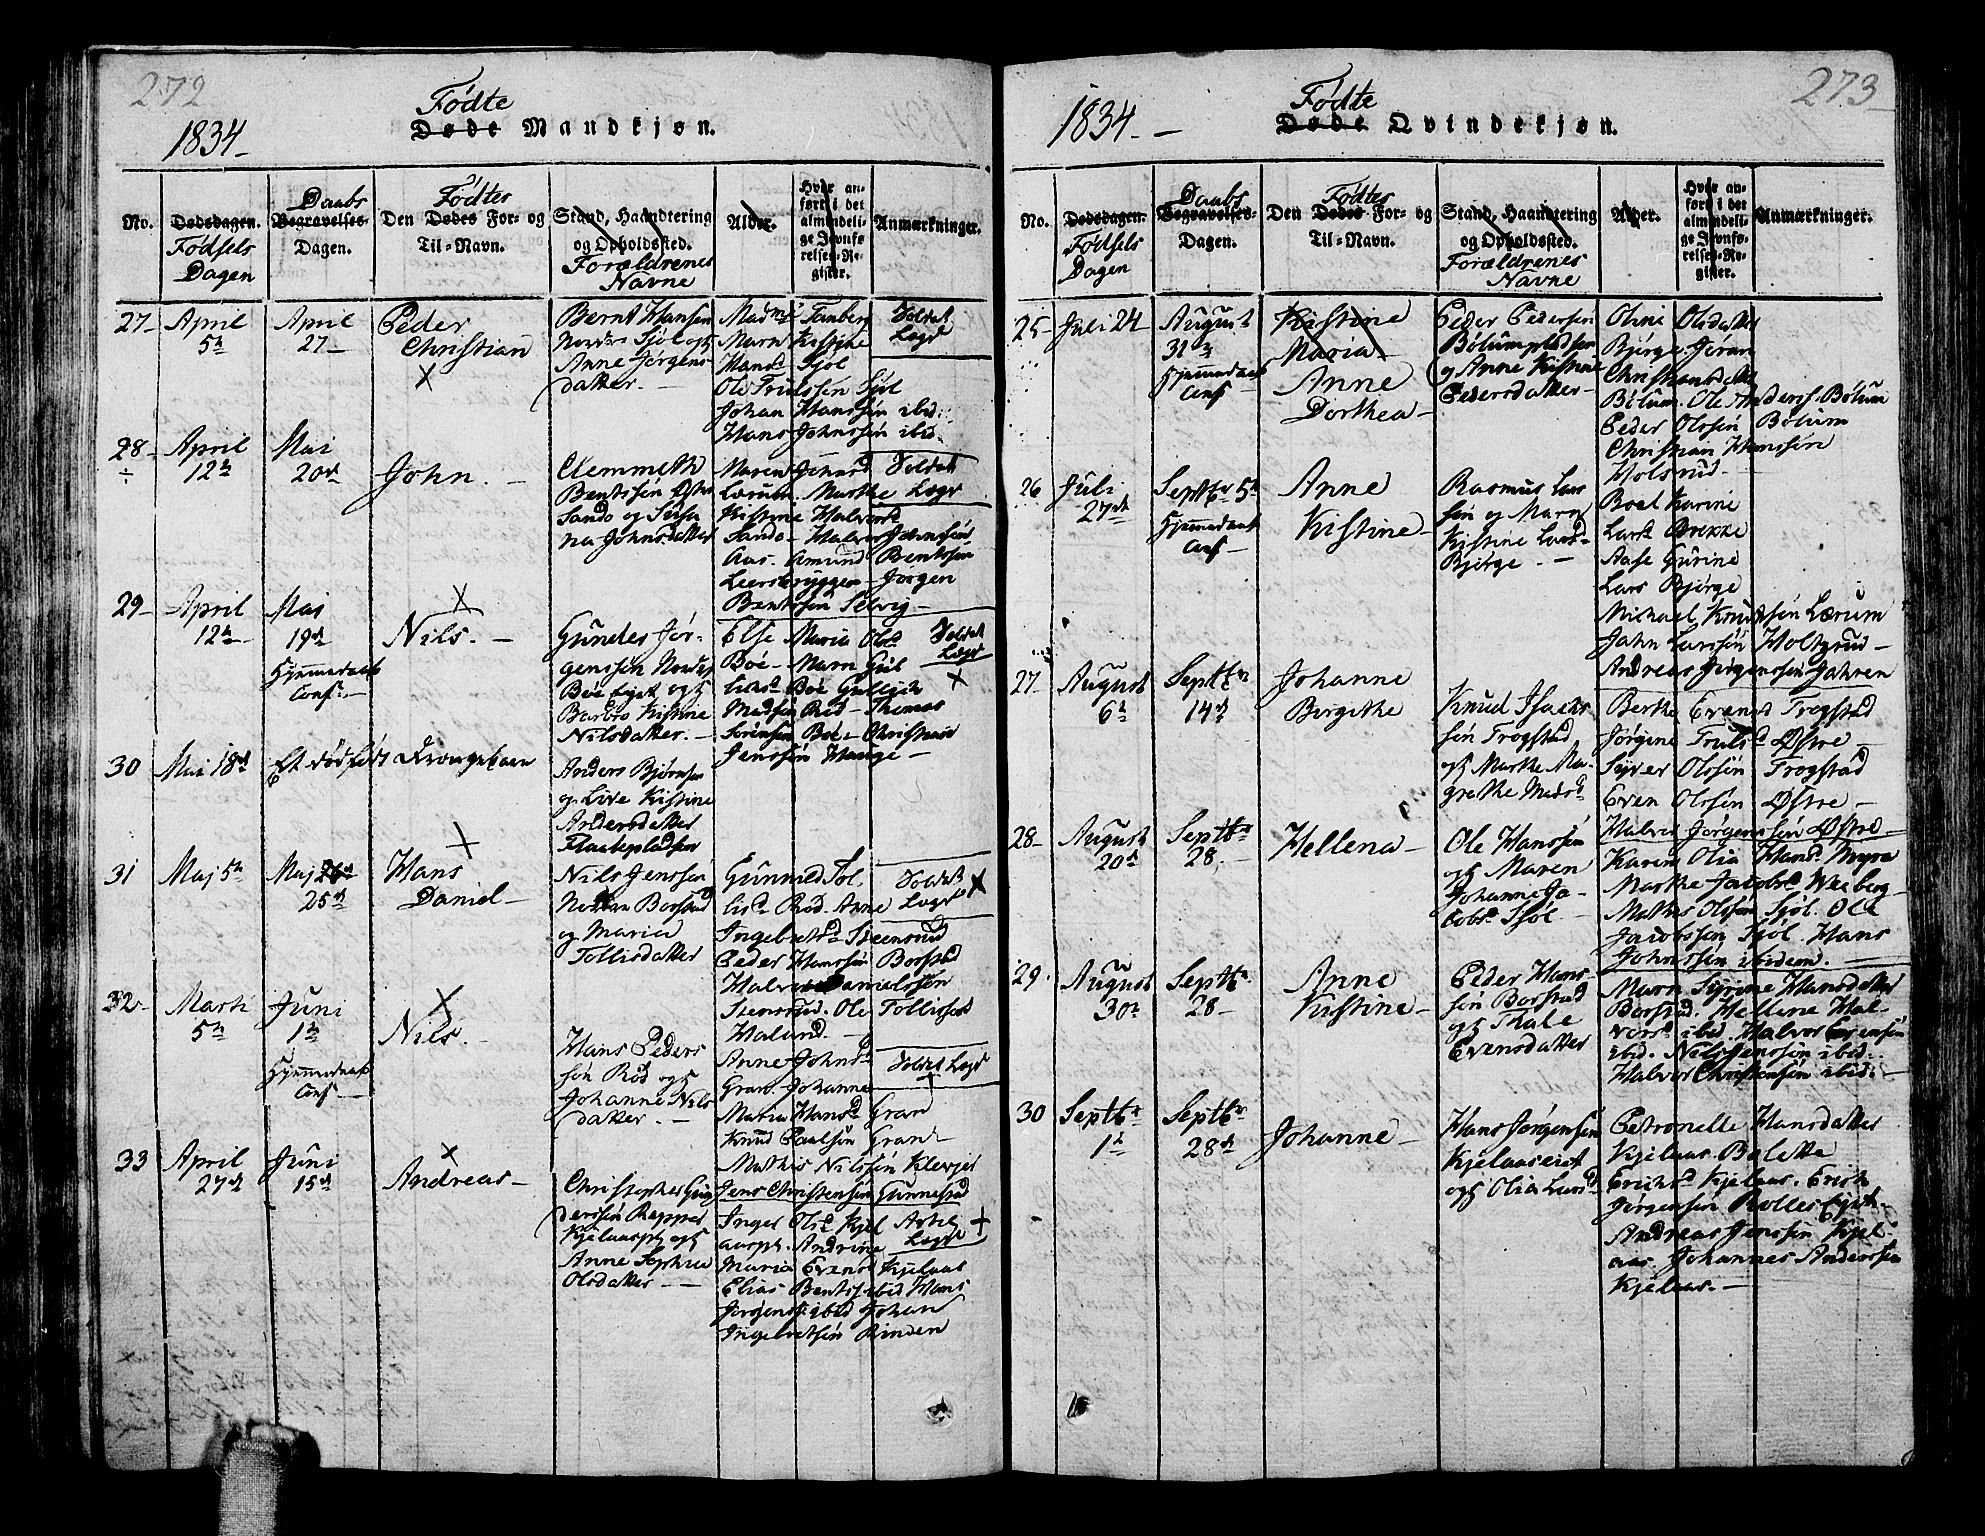 272
Födte
1834 –
Døde Mandkjøn.
No.
Dødsdagen.
Födsels
Dagen
Daabs
Begravelses-
Dagen.
Födtes
Den Dødes For- og
Til-Navn.
Stand, Haandtering
og Opholdssted.
Forældrenes
Navne
Alder.
Hvor an-
ført i det
almindeli-
ge Jevnfø-
relses-Re-
gister.
Anmærkninger.
27 –
April
5te
April
27 –
Peder
Christian
Bernt Hansen
Nordre Sjöl og
Anne Jørgens
datter. –
Madme Fanberg
Marn Kistine
Hansd Sjöl
Ole Trulssen Sjöl
Johan Hanssen ibid:
Hans Johnssen ibid:
Soldat
Lægd
28 –
April
12te
Mai
20de
John. –
Clemmeth
Bentssen Østre
Sando og
na Johnsdatter
Maren
Lærum. Marthe
Kistine Halvorsd
Sando – Halvor Johnssen
Aas. Amund Bentssen
Leersbryggen – Jörgen
Bentssen Selvig –
Soldat
Lægd
29 –
April
12te
Mai
19de
Hjemmedøbt
Conf. –
Nils. –
Gunder Jör-
genssen Nordre
Böe Eiet og
Barbro Kistine
Nilsdatter. –
Else Maria Olsd
Böe – Marn Gul
liksd Böe Gullich
Madssen Röd – Thomas
Sörenssen Böe – Christian
Jenssen Hauge –
Soldat
Lægd
30
Mai 18de
Et dödfödt Drengebarn
Anders Björnsen
og Live Kistine
Andersdatter
31
Maj 5te
Maj
25de
Hans
Daniel –
Nils Jenssen
Nordre Borstad
og Maria
Tollisdatter
Gunnild Tol
lisd Röd. Anne
Ingebretsd Steensrud
Peder Hanssen Borstad
Halvor Danielssen
Steensrud. Ole Tollissen
Haland. –
Soldat
Lægd
32 –
Marti
5te
Juni
1te
Hjemmedøbt
Conf. –
Nils. –
Hans Peders
sen Röd og
Johanne Nils
datter. –
Anne Johnsd
Gran. Johanne
Maria Hansd Gran
Knud Paulsen Gran –
Mathis Nilssen Klevjer
Jens Christensen Gunnestad
Soldat Lægd
33
April
27de
Juni
15de
Andreas –
Christopher Gun
derssen Rapper
Kjelaaspl og
Anne Sophia
Olsdatter –
Inger Olsd Kjel
aaspl. Andrine
Maria Evensd Kjelaas
Elias Bentss ibid Hans
Jörgens. ibid Johan
Ingebretsen Rinden
Lægd
273
Födte
1834. –
Døde Qvindekjøn.
No.
Dødsdagen.
Födsels
Dagen
Daabs
Begravelses-
Dagen.
Födtes
Den Dødes For- og
Til-Navn.
Stand, Haandtering
og Opholdssted.
Forældrenes
Navne
Alder.
Hvor an-
ført i det
almindeli-
ge Jevnfø-
relses-Re-
gister.
Anmærkninger.
25 –
Juli 24
August
31te
Hjemmedøbt
Conf –
Kistine
Maria –
Anne
Dorthea –
Peder Pedersen
Bölumpladsen
og Anne Kistine
Pedersdatter –
Oline Olsdatter
Bjerge Jöran
Christiansdatter
Bölum. Ole Anderss. Bölum
Peder Olssen Bölum
Christian Hanssen
Holsrud –
26
Juli
27de
Septbr 5te
Hjemmedøbt
Conf –
Anne
Kistine –
Rasmus Lars
sen og Marn
Kistine Larsd
Bjerge. –
Boel Karine
Larsd Brekke
Aase Gurine
Lars Bjerge
Michael Knudssen Lærum
Jahn Larssen Holtsrud –
Andreas Jörgenssen Jahren
27 –
August
6te
Septbr
14de
Johanne
Birgithe
Knud Isachs
sen Trogstad
og Marthe Ma-
grethe Madsd
Berthe Evensd Trogstad
Jörgine Trulsd Østre –
Syver Olssen Trogstad
Even Olssen Østre –
Halvor Jörgenssen Østre –
28 –
August
20de
Septbr
28. –
Hellena –
Ole Hanssen
og Maren
Johanne Ja-
cobsd Sjöl –
Karen Olia Hansd Myra
Marthe Jacobsd Weeberg –
Mathis Olssen Sjöl. Ole
Jacobssen Sjöl. Hans
Johnssen ibidem. –
29
August
30te
Septbr
28 –
Anne
Kistine –
Peder Hans
sen Borstad
og Thale
Evensdatter
Marn Syrine Hansdatter
Borstad. Helline Hal-
vorsd ibid. Halvor Evenssen
ibid. Nils Jenssen ibid:
Halvor Christensen ibid: –
30
Septbr
1te
Septbr
28de
Johanne –
Hans Jörgensen
Kjelaaseiet
og Olia Larsd
Petronelle Hansdatter
Kjelaas. Bolette
Erichsd Kjelaas. Erich
Jörgenssen Rolles Eiet –
Andreas Jenssen Kjel
aas. Johannes Andersen
Kjelaas. –